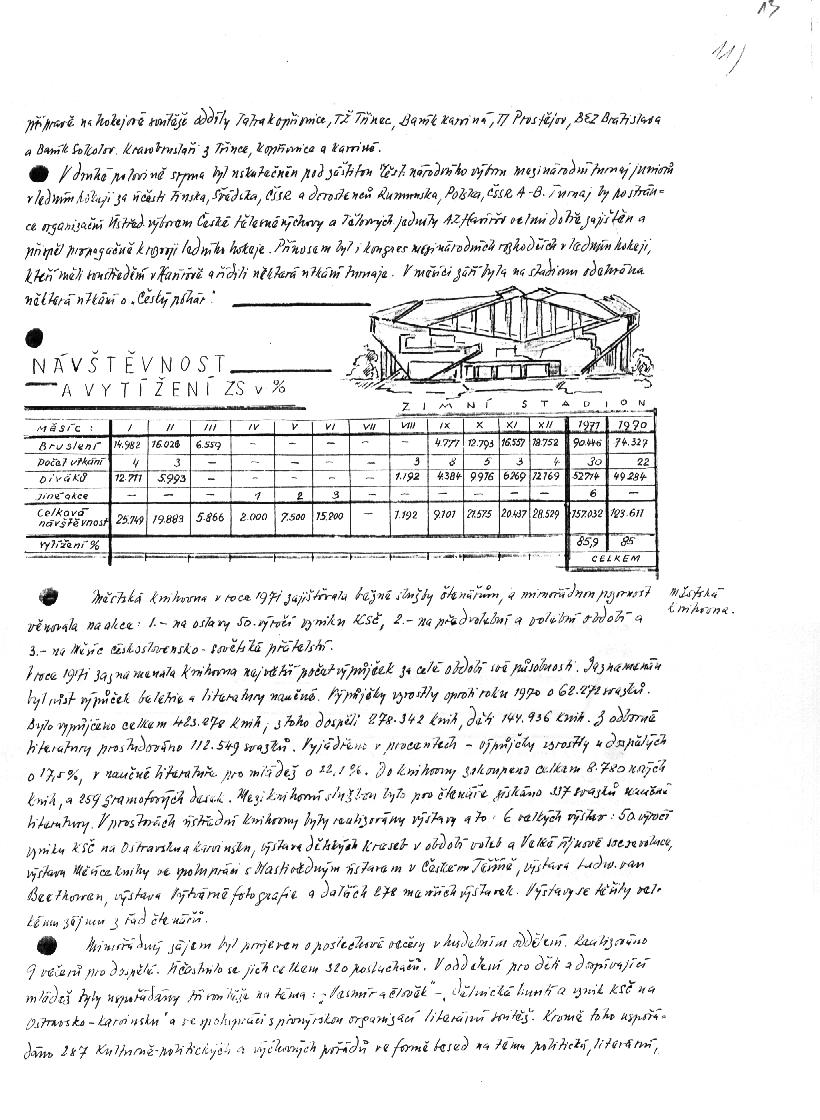 13
11)
přípravě na hokejové soutěže oddíly Tatra Kopřivnice, TŽ Třinec, Baník Karviná, TJ Prostějov, BEZ Bratislava
a Baník Sokolov. Krasobruslaři z Třince, Kopřivnice a Karviné.
V druhé polovině srpna byl uskutečněn pod záštitou Měst. národního výboru mezinárodní turnaj juniorů
v ledním hokeji za účasti Finska, Švédska, ČSSR a dorostenců Rumunska, Polska, ČSSR A-B. Turnaj by po strán-
ce organizační Ústřed. výborem České tělesné výchovy a Tělových. jednoty AZ Havířov velmi dobře zajištěn a
přispěl propagačně k rozvoji ledního hokeje. Přínosem byl i kongres mezinárodních rozhodčích v ledním hokeji,
kteří měli soustředění v Havířově a řídili některá utkání turnaje. V měsíci září byla na stadionu odehrána
některá utkání o „Český pohár".
NÁVŠTĚVNOST
A VYTÍŽENÍ ZS v %
ZIMNÍ STADION
MĚSÍC : I II III IV V VI VII VIII IX X XI XII 1971 1970
Bruslení 14.982 16.026 6.559 – – – – – 4.777 12.793 16.557 18.752 90.446 74.327
Počet utkání 4 3 – – – – – 3 8 5 3 4 30 22
Diváků 12.711 5.993 – – – – – 1.192 4.384 9.976 6.269 12.169 52.714 49.284
Jiné akce – – – 1 2 3 – – – – – – 6 –
Celková návštěvnost 25.749 19.883 5.866 2.000 7.500 15.200 – 1.192 9.101 21.575 20.437 28.529 157.032 123.611
Vytížení % 85,9 85
CELKEM
Městská knihovna v roce 1971 zajišťovala běžné služby čtenářům, a mimořádnou pozornost
Městská
knihovna.
věnovala na akce : 1.– na oslavy 50. výročí vzniku KSČ, 2.– na předvolební a volební období a
3.– na Měsíc československo-sovětské přátelství.
V roce 1971 zaznamenala knihovna největší počet výpůjček za celé období své působnosti. Zaznamenán
byl růst výpůjček beletrie a literatury naučné. Výpůjčky vzrostly oproti roku 1970 o 62.272 svazků.
Bylo vypůjčeno celkem 423.278 knih, z toho dospělí 278.342 knih, děti 144.936 knih. Z odborné
literatury prostudováno 112.549 svazků. Vyjádřeno v procentech – výpůjčky vzrostly u dospělých
o 17,5%, v naučné literatuře pro mládež o 22,1%. Do knihovny zakoupeno celkem 8.780 nových
knih, a 259 gramofonových desek. Meziknihovní službou bylo pro čtenáře získáno 337 svazků naučné
literatury. V prostorách ústřední knihovny byly realizovány výstavy a to : 6 velkých výstav : 50. výročí
vzniku KSČ na Ostravsku a Karvinsku, výstava dětských kreseb v období voleb a Velké říjnové soc. revoluce,
výstava Měsíce knihy ve spolupráci s Vlastivědným ústavem v Českém Těšíně, výstava Ludw. van
Beethowen, výstava Výtvarné fotografie a dalších 278 menších výstavek. Výstavy se těšily vel-
kému zájmu z řad čtenářů.
Mimořádný zájem byl projeven o poslechové večery v hudebním oddělení. Realizováno
9 večerů pro dospělé. Účastnilo se jich celkem 320 posluchačů. V oddělení pro děti a dospívající
mládež byly uspořádány tři soutěže na téma : „Vesmír a člověk" – „Dělnické hnutí a vznik KSČ na
Ostravsko-Karvinsku" a ve spolupráci s pionýrskou organizací literární soutěž. Kromě toho uspořá-
dáno 287 kulturně-politických a výchovných pořadů ve formě besed na téma politická, literární,